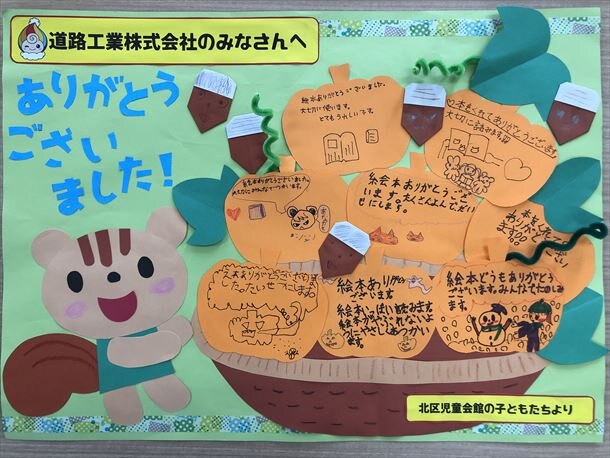 道路工業株式会社のみなさんへ
ありがとう
ござい
ました!
絵本ありがとうございました。
大切に使います。
とてもうれしいです。
本をくれてありがとうございます
大切に読みます
絵本ありがとうございました。
絵本ありがとうござ
います。
せにします。
本を
ありがとう
ございます
ありがとうございます
絵本ありがとう
ございます
絵本いっぱい読みます
絵本がやぶれないよ
うにやさしくあつかい
ます。
絵本どうもありがとう
ございます。みんなでたのしみ
ます。
北区児童会館の子どもたちより